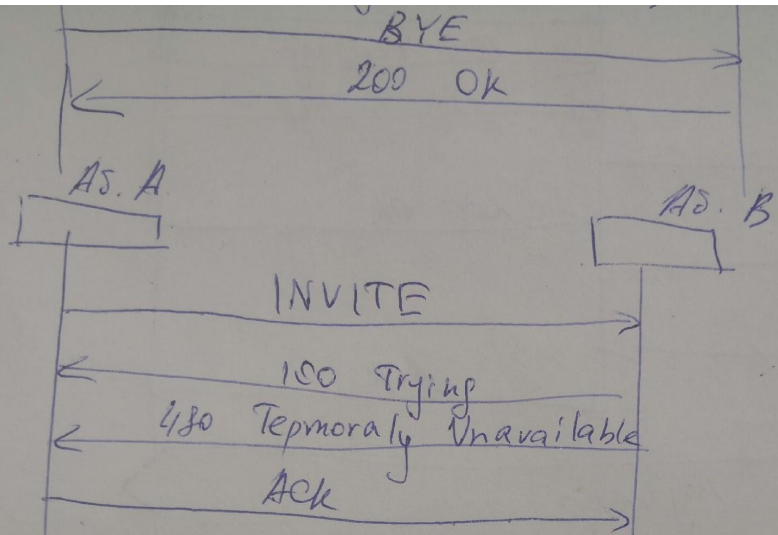 BYE
200 OK
Аб. А
Аб. В
INVITE
100 Trying
480 Tepmoraly Unavailable
ACK